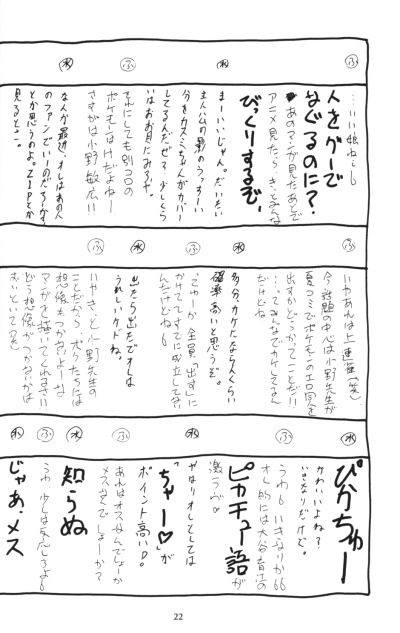 ふ
…いい娘ねぇ
人をグーで
なぐるのに?
あのマンガ見たあとで
アニメ見たら、きっとみんな
びっくりするぞ。
水
まーいいじゃん。だいたい
主人公の影のうっすーい
分をカスミちゃんがカバー
してるんだぜ?少しくら
いはお目にみろや。
ふ
それにしても別コロの
さすがは小野敏広!!
水
なんか最近、オレはあの人
のファンでいーのだろうか
とか思うのよ。ZIPとか
見ると…。
ふ
いやあれは上連雀(笑)
今話題の中心は小野先生が
夏コミでポケモンのエロ同人を
出すかどうかってことだ!!
…ってみんなでカケてるん
だけどね
水
多分、カケにならんくらい
確率高いと思うぞ。
ふ
てゆーか全員「出す」に
かけててすでに成立してな
んだけどね
水
出たら出たでオレは
うれしいケドね。
ふ
いやきっと小野先生の
ことだから、ボクたちには
想像もつかないよーな
マンガを描いてくれるさ!!
どう想像がつかないかは
おいといて(笑)
水
ぴかちゅー
かわいいよね?
いきなりだけど。
ふ
うわ いきなりか
オレ的には大谷育江の
ピカチュー語が
激ラヴ♡
水
やはりオレとしては
「ちゃー♡」が
ポイント高い。
ふ
あれはオスなんでしょーか
メスなんでしょーか?
水
知らぬ
ふ
うわ 少しは反応しろよ
水
じゃあ、メス
22